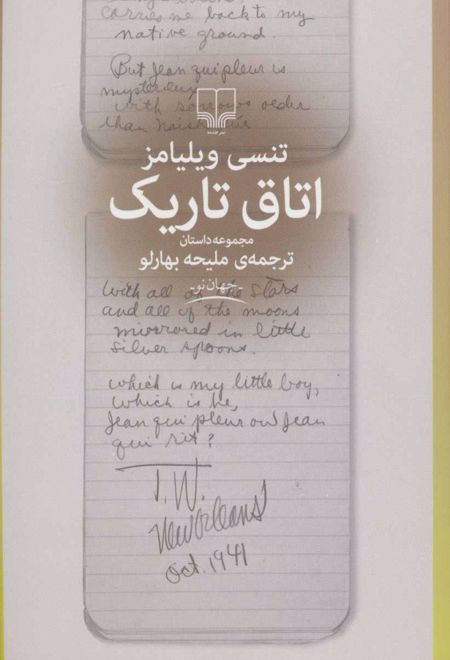 carries me back to my
native ground.
But Jean qui pleur is
mysterious
with sorrows older
than
نشر چشمه
تنسی ویلیامز
اتاق تاریک
مجموعه داستان
ترجمه‌ی ملیحه بهارلو
- جهان نو -
with all of the stars
and all of the moons
mirrored in little
silver spoons.
which is my little boy,
which is he,
Jean qui pleur ou Jean
qui rit?
T. W.
New Orleans
Oct. 1941